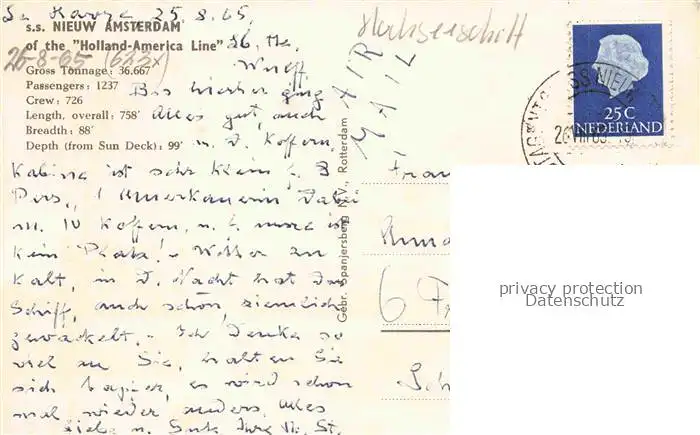 Le Havre 25.8.65
s.s. NIEUW AMSTERDAM
of the "Holland-America Line"
26-8-65 (623x)
Gross Tonnage: 36.667
Passengers: 1237
Crew: 726
Length, overall: 758'
Breadth: 88'
Depth (from Sun Deck): 99'
Bis hierher ging
Alles gut, auch
m. d. Koffern,
Kabine ist sehr klein f. 3
Pers., 1 Amerikanerin dabei
m. 10 Koffern, u. f. more ist
kein Platz! - Wetter zu
kalt, in d. Nacht hat das
Schiff, auch schon ziemlich
gewackelt. - Ich denke so
viel an Sie, halten Sie
sich tapfer, es wird schon
mal wieder anders. Alles
Liebe u. Gute
Gebr. Spanjersberg N.V., Rotterdam
AIR
MAIL
Hochseeschiff
25 C
NEDERLAND
6
privacy protection
Datenschutz